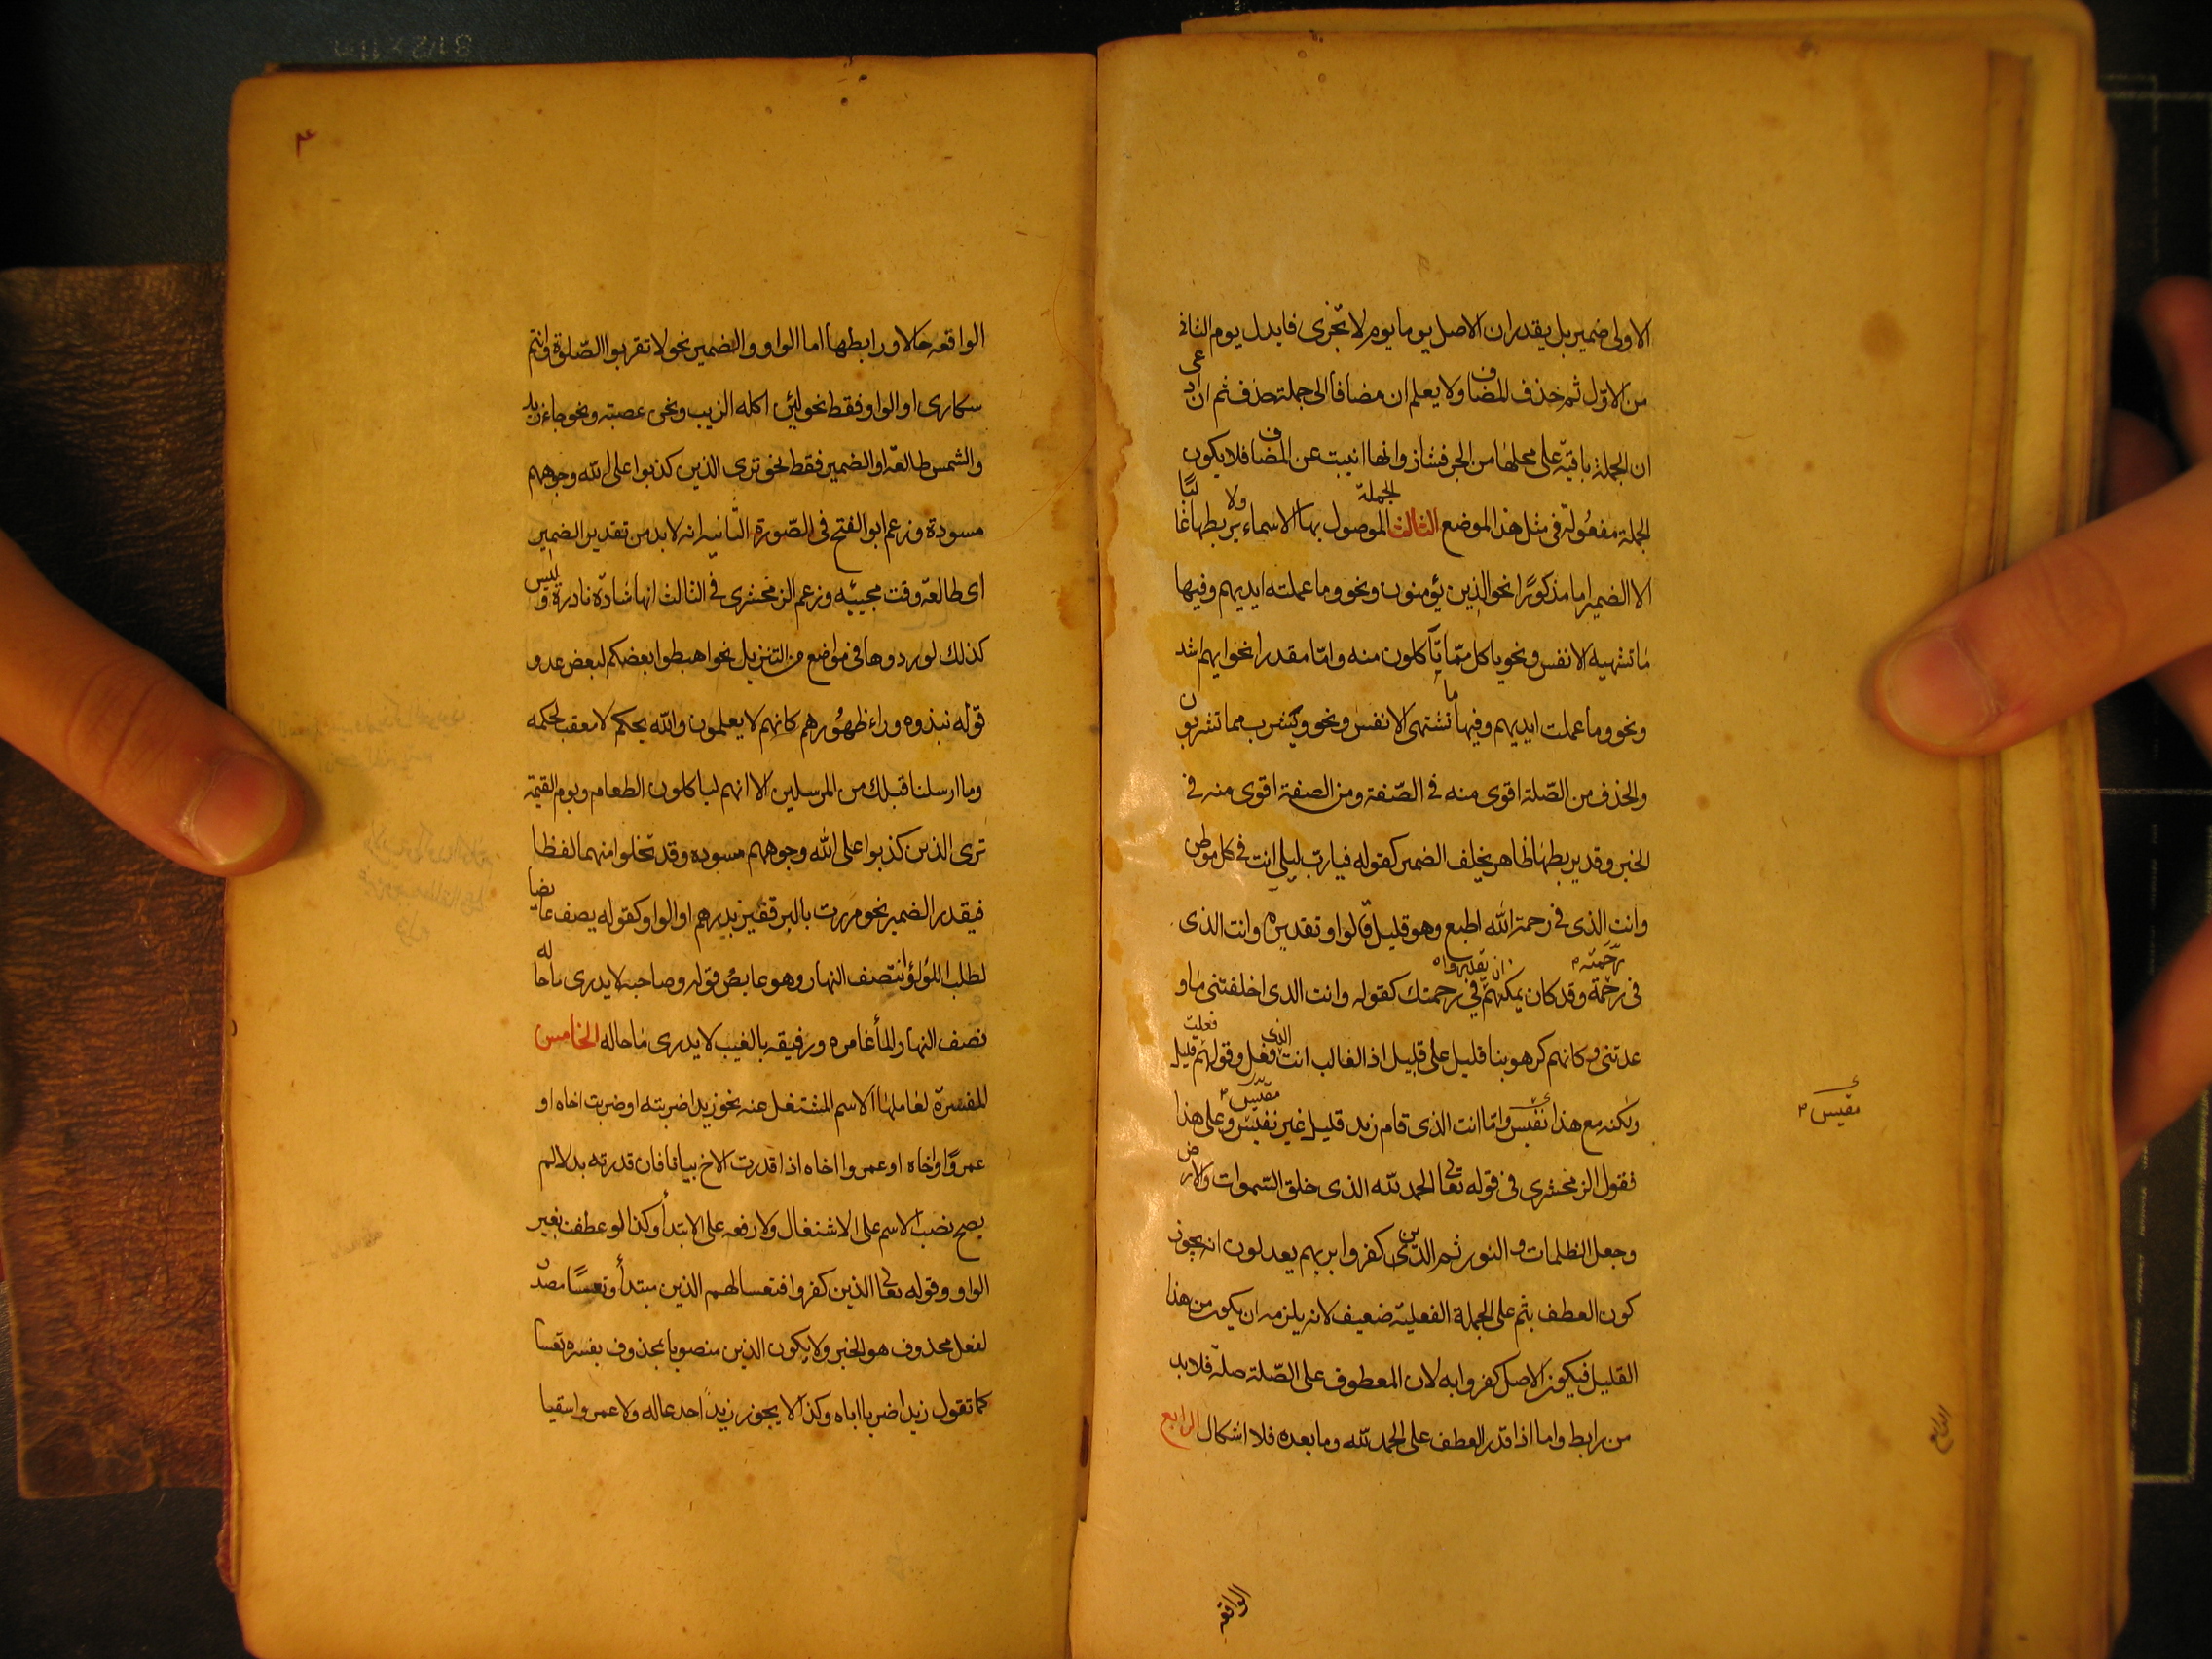 الاولى ضمير بل يقدر ان الاصل يوما يوم لا تجزى فابدل يوم الثانى
من الاوّل ثم حذف المضاف ولا يعلم ان مضافا الى جملة حذف ثم ان ادعى
ان الجملة باقية على محلها من الجر فشاذ وانها انيبت عن المضاف فلا يكون
الجملة مفعولة فى مثل هذا الموضع الثالث الجملة الموصول بها الاسماء ولا يربطها غالبًا
الا الضمير اما مذكورًا نحو الذين يؤمنون ونحو وما عملته ايديهم وفيها
ما تشتهيه الانفس ونحو ياكل ممّا تأكلون منه وامّا مقدرا نحو ايهم اشد
ونحو وما عملت ايديهم وفيها ما تشتهى الانفس ونحو ويشرب مما تشربون
والحذف من الصّلة اقوى منه فى الصّفة ومن الصفة اقوى منه فى
الخبر وقد يربطها ظاهر يخلف الضمير كقوله فيا رب ليلى انت فى كل موطن
وانت الذى فى رحمة الله اطمع وهو قليل قالوا وتقديره وانت الذى
فى رحمته وقد كان يمكنهم ان يقدروا فى رحمتك كقوله وانت الذى اخلفتنى ما و
عدتنى وكانهم كرهوا بنا قليل على قليل اذ الغالب انت الذى فعل وقولهم فعلت قليل
ولكنه مع هذا مقيس وامّا انت الذى قام زيد قليل غير مقيس وعلى هذا
مقيس
فقول الزمخشرى فى قوله تعالى الحمد لله الذى خلق السموات والارض
وجعل الظلمات والنور ثم الذين كفروا بربهم يعدلون انه يجوز
كون العطف بثم على الجملة الفعلية ضعيف لانه يلزمه ان يكون من هذا
القليل فيكون الاصل كفروا به لان المعطوف على الصّلة صلة فلا بد
من رابط واما اذا قدر العطف على الحمد لله وما بعده فلا اشكال الرابع
الرابع
الواقعه
الواقعه حالا ورابطها اما الواو والضمير نحو لا تقربوا الصّلوة وانتم
سكارى او الواو فقط نحو لئن اكله الذيب ونحن عصبة ونحو جاء زيد
والشمس طالعة او الضمير فقط نحو ترى الذين كذبوا على الله وجوههم
مسودة وزعم ابو الفتح فى الصّورة الثانيه انه لا بد من تقدير الضمير
اى طالعة وقت مجيئه وزعم الزمخشرى فى الثالث انها شاذّة نادرة وليس
كذلك لورودها فى مواضع من التنزيل نحو اهبطوا بعضكم لبعض عدو
قوله نبذوه وراء ظهورهم كانهم لا يعلمون والله يحكم لا معقب لحكمه
وما ارسلنا قبلك من المرسلين الا انهم لياكلون الطعام ويوم القيمة
ترى الذين كذبوا على الله وجوههم مسوده وقد تخلو منهما لفظا
فيقدر الضمير نحو مررت بالبر قفيز بدرهم او الواو كقوله يصف غايضا
لطلب اللؤلؤ انتصف النهار وهو غايص قوله وصاحبه لا يدرى ما حاله
نصف النهار الماء غامره ورفيقه بالغيب لا يدرى ما حاله الخامس
المفسرة لعاملها الاسم المشتغل عنه نحو زيدا ضربته او ضربت اخاه او
عمروًا واخاه او عمروا اخاه اذا قدرت الاخ بيانا فان قدرته بدلا لم
يصح نصب الاسم على الاشتغال ولا رفعه على الابتدا وكذا لو عطفت بغير
الواو وقوله تعالى الذين كفروا فتعسا لهم الذين مبتدأ وتعسًا مصدر
لفعل محذوف هو الخبر ولا يكون الذين منصوبا بمحذوف يفسره تعسا
كما تقول زيدا ضربا اياه وكذا لا يجوز زيدا جدعا له ولا عمروا سقيا